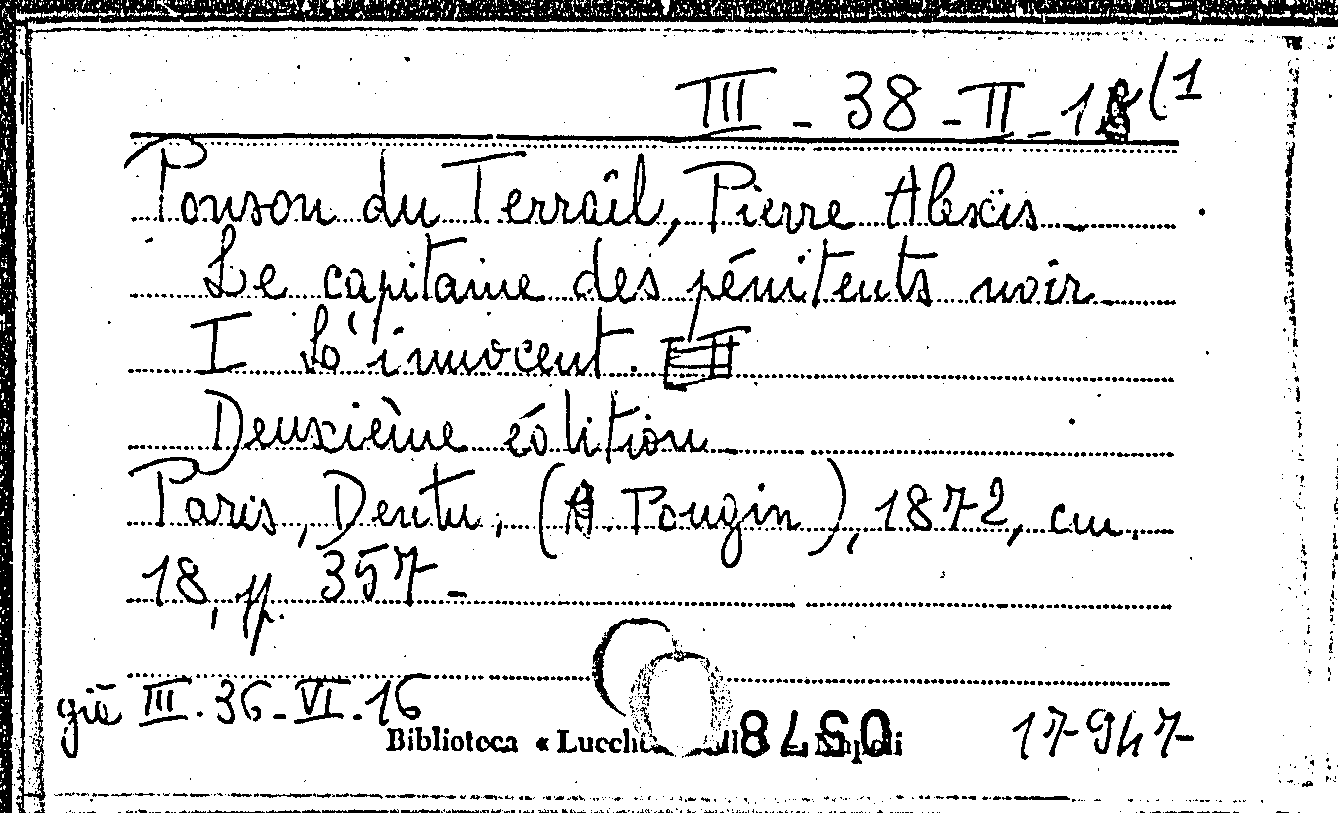 III - 38 - II - 18 (1
Ponson du Terrail, Pierre Alexis -
Le capitaine des pénitents noir -
I L'innocent.
Deuxième édition -
Paris, Dentu, (A. Pougin), 1872, cm.
18, pp. 357 -
già III. 36 - VI. 16
Biblioteca «
0578
17947